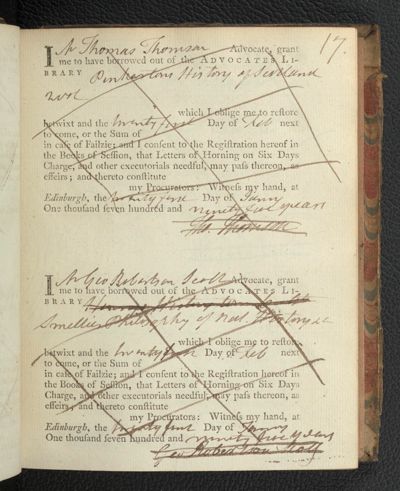 17.
I Mr Thomas Thomson Advocate, grant
me to have borrowed out of the ADVOCATES LI-
BRARY Pinkertons History of Scotland
2 vol
which I oblige me to reſtore
betwixt and the twenty first Day of Feb next
to come, or the Sum of
in caſe of Failzie; and I conſent to the Regiſtration hereof in
the Books of Seſſion, that Letters of Horning on Six Days
Charge, and other executorials needful, may paſs thereon, as
effeirs; and thereto conſtitute
my Procurators: Witneſs my hand, at
Edinburgh, the twenty first Day of Janry
One thouſand ſeven hundred and ninety five years
Tho. Thomson
I Mr Geo Robertson Scott Advocate, grant
me to have borrowed out of the ADVOCATES LI-
BRARY
Smellies Philosophy of Nat. History
which I oblige me to reſtore
betwixt and the twenty first Day of Feb next
to come, or the Sum of
in caſe of Failzie; and I conſent to the Regiſtration hereof in
the Books of Seſſion, that Letters of Horning on Six Days
Charge, and other executorials needful, may paſs thereon, as
effeirs; and thereto conſtitute
my Procurators: Witneſs my hand, at
Edinburgh, the twenty first Day of Janry
One thouſand ſeven hundred and ninety five years
Geo Robertson Scott